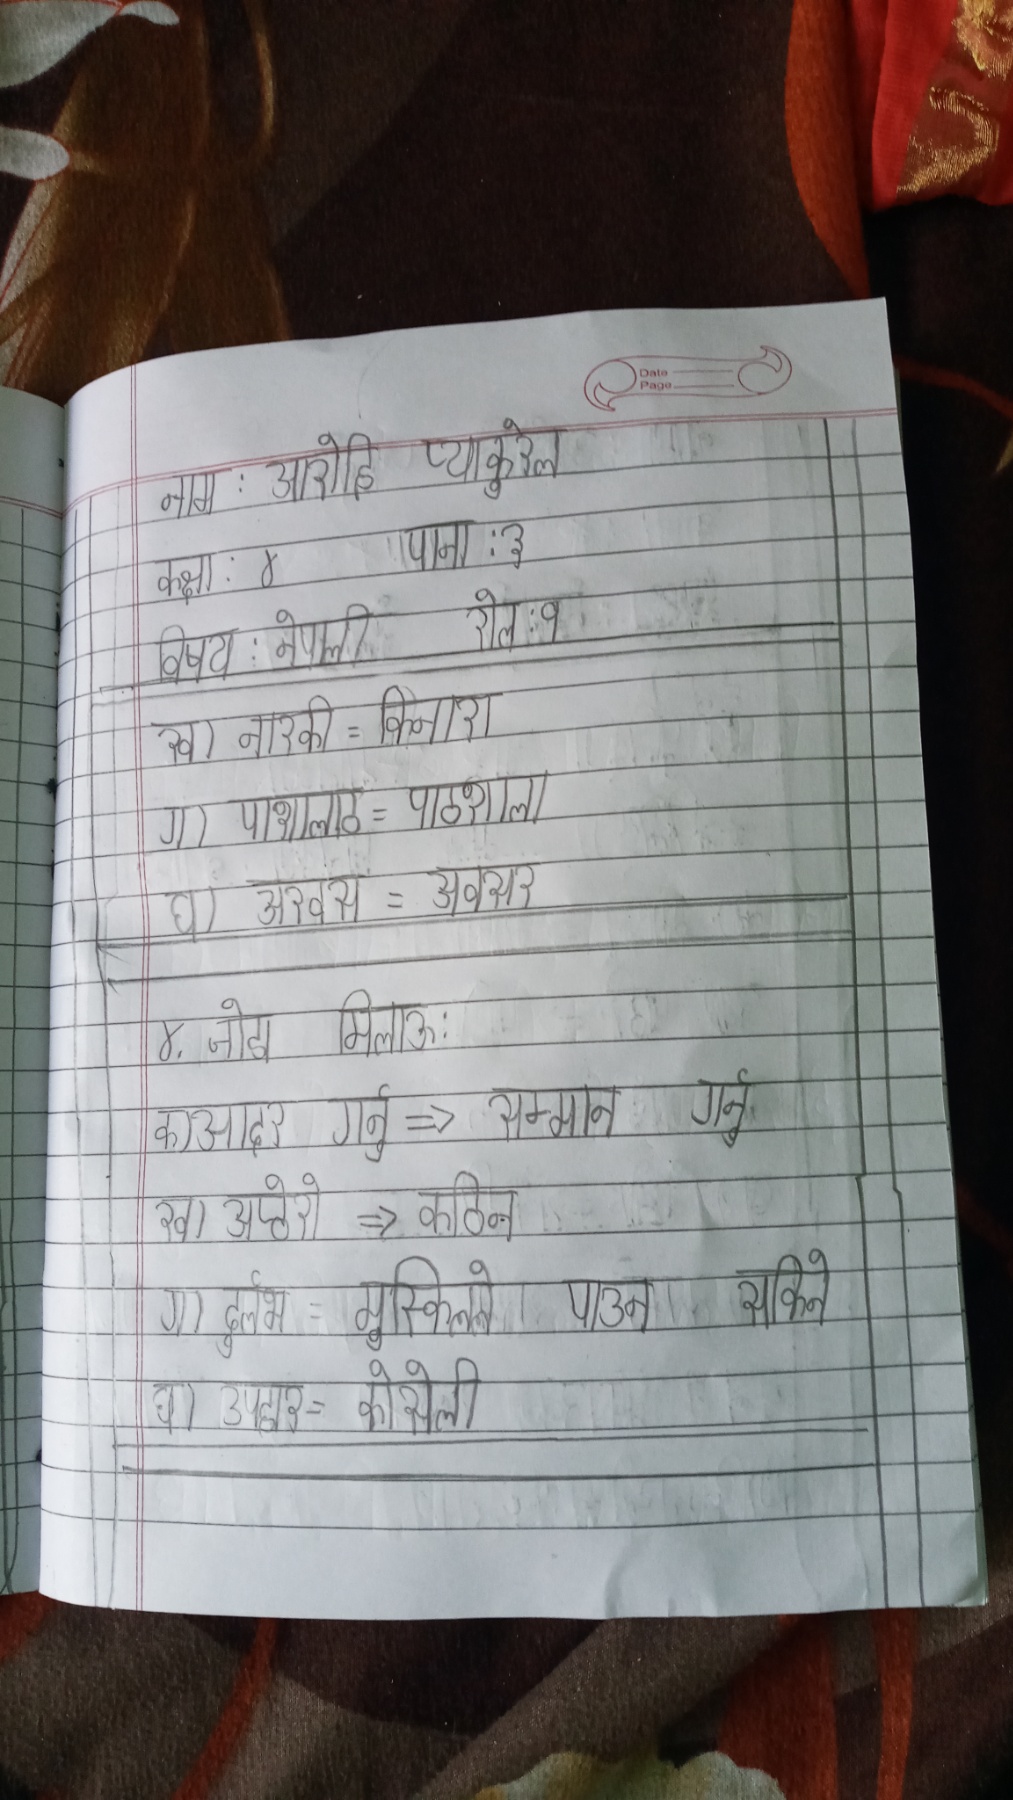 Date
Page
नाम : आरोहि प्याकुरेल
कक्षा : ४ पाना : ३
विषय : नेपाली रोल : १
ख) नारकी = किनारा
ग) पाशालाठ = पाठशाला
घ) अरवस = अवसर
४. जोडा मिलाऊ :
क) आदर गर्नु ⇒ सम्मान गर्नु
ख) अप्ठेरो ⇒ कठिन
ग) दुर्लभ = मुस्किलले पाउन सकिने
घ) उपहार = कोसेली